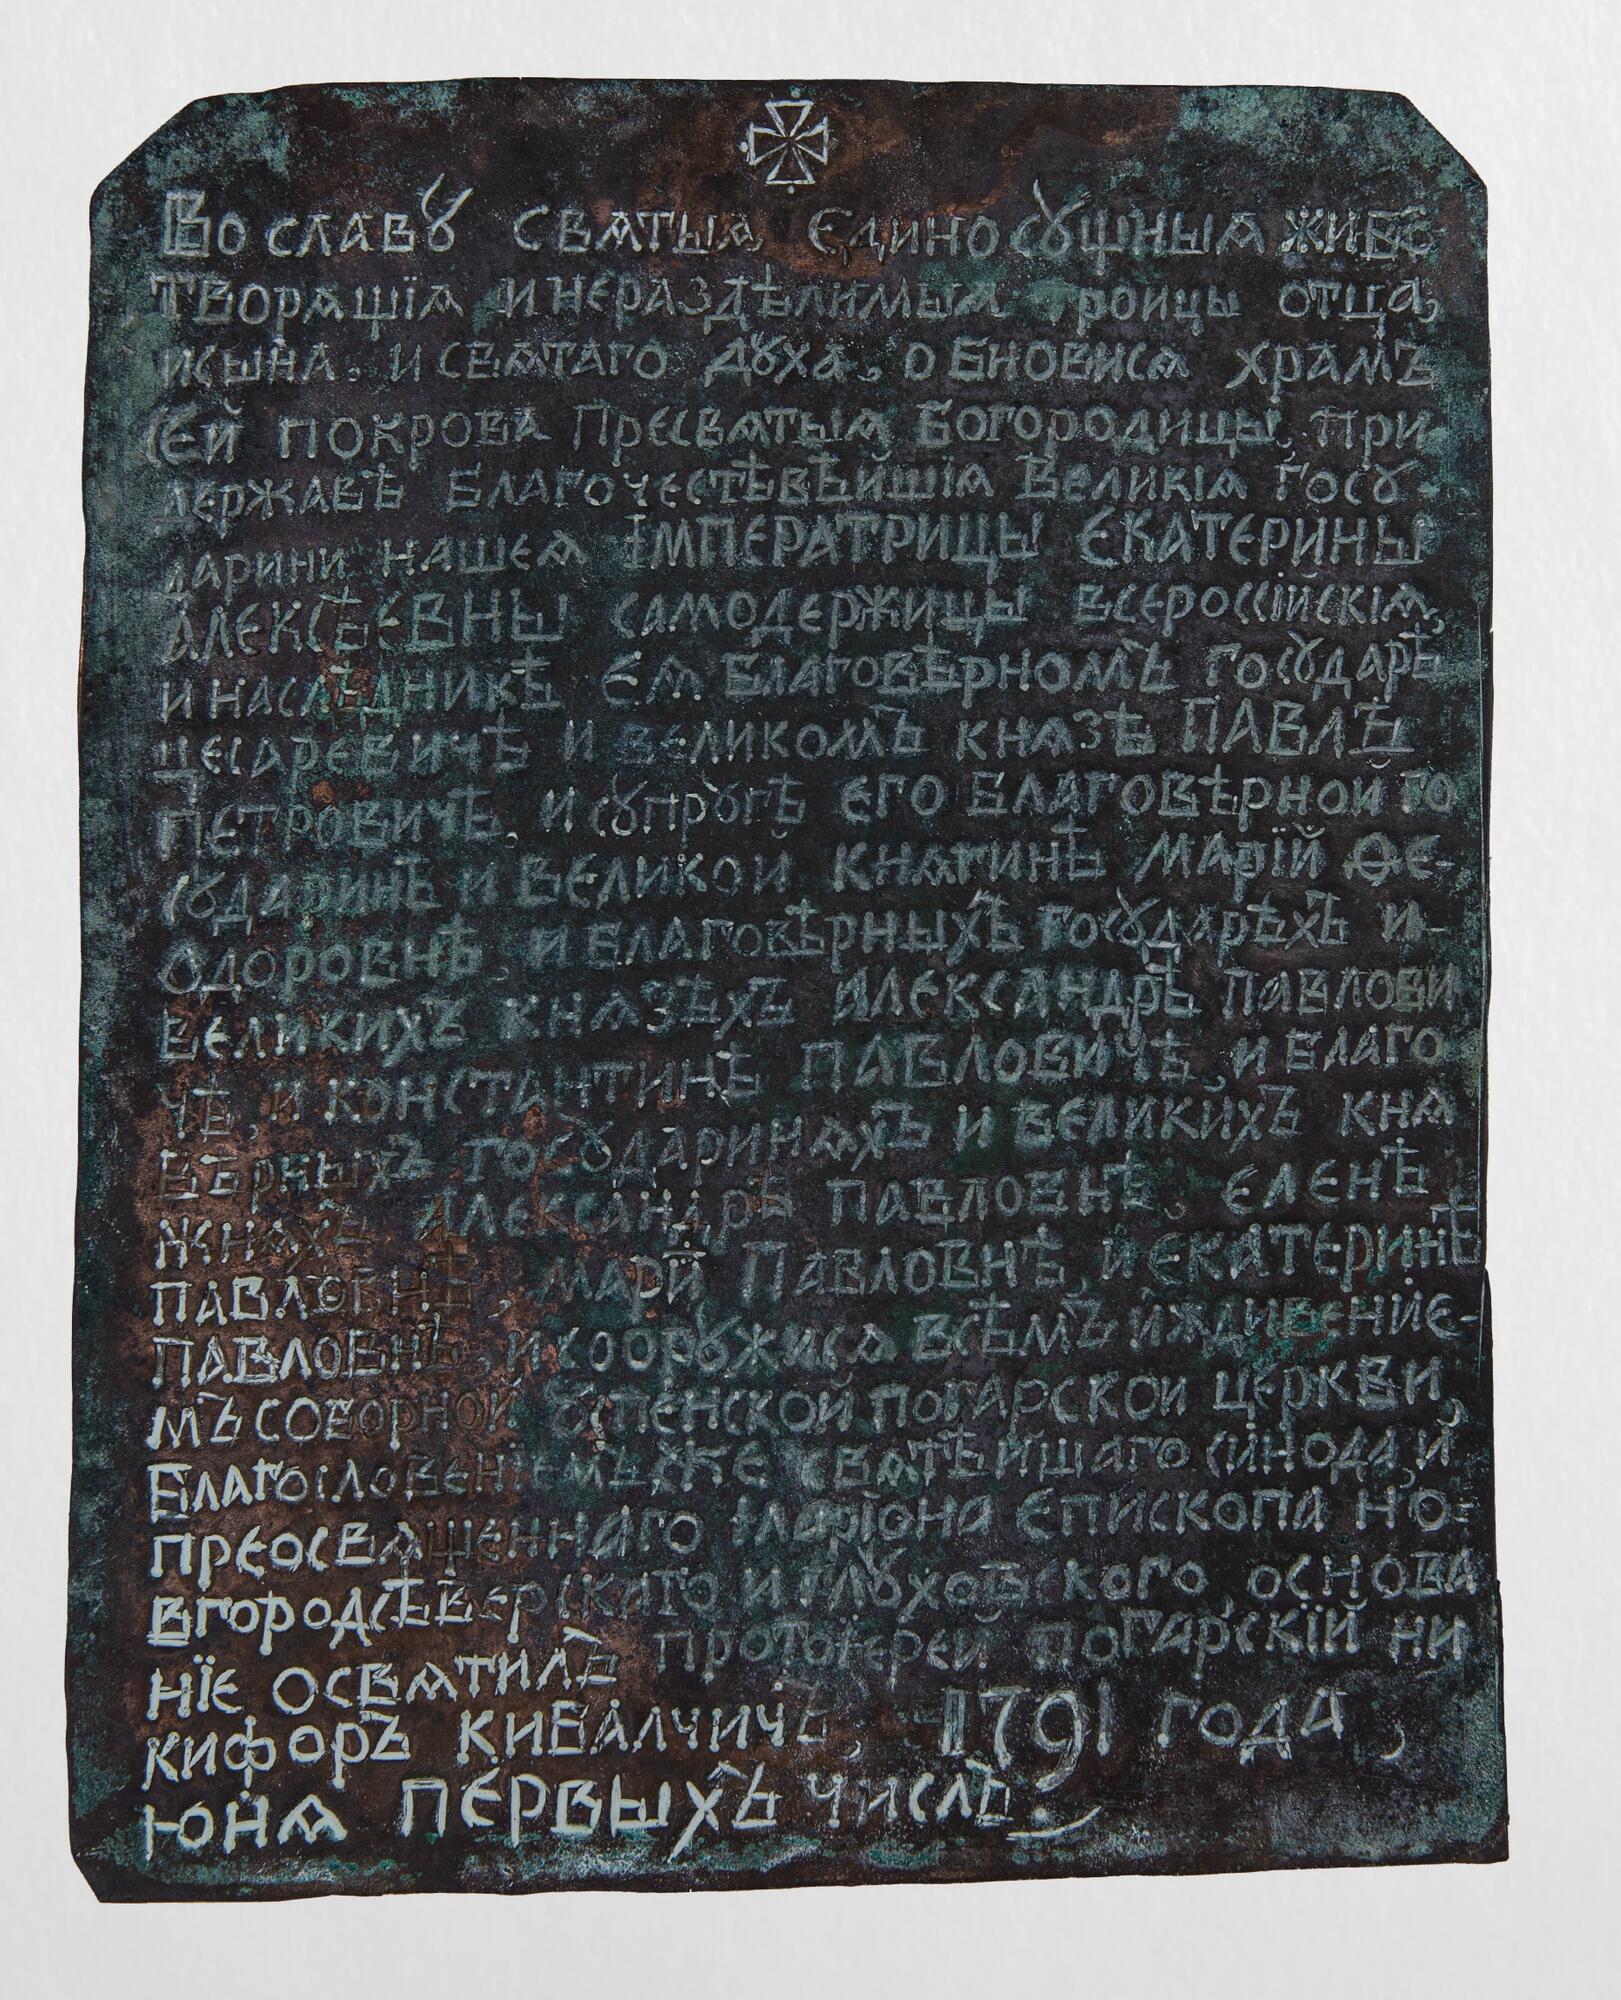 Во славȣ свѧтыѧ Єдиносȣщныѧ живо
творѧщїѧ и нераздѣлимыѧ троицы отца,
и сына, и свѧтаго дȣха, обновисѧ храмъ
сей покрова Пресвѧтыѧ Богородицы, при
державѣ Благочестѣвѣйшїѧ Великїѧ Госȣ-
дарини нашеѧ Імператрицы Екатерины
Алексѣевны самодержицы всероссїйскїѧ,
и наслѣдникѣ Еѧ Благовѣрномъ Госȣдарѣ
цесаревичѣ и великомъ кнѧзѣ Павлѣ
Петровичѣ, и сȣпрȣгѣ его Благовѣрной го
сȣдаринѣ и великой кнѧгинѣ Марїй Ѳе-
одоровнѣ, и Благовѣрныхъ госȣдарѣхъ и-
великихъ кнѧзѣхъ Александрѣ Павлови
чѣ, и константинѣ Павловичѣ, и Благо
вѣрныхъ госȣдаринѧхъ и великихъ кнѧ
жнѧхъ Александрѣ Павловнѣ, еленѣ
Павловнѣ, Марїй Павловнѣ, и екатеринѣ
Павловнѣ, и соорȣжисѧ всѣмъ иждивенїе-
мъ соборной ȣспенской погарской церкви,
Благословенїемъ же свѧтѣйшаго сѵнода, и
преосвѧщеннаго Іларїона епископа но-
вгородсѣверскаго и глȣховского основа
нїе освѧтилъ протоїерей погарскїй ни
кифоръ кибалчичъ, 1791 года,
юнѧ первыхъ числѣ.